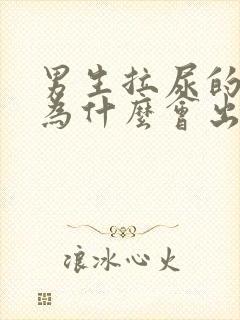 男生拉尿的
為什麼會出
浪冰心火